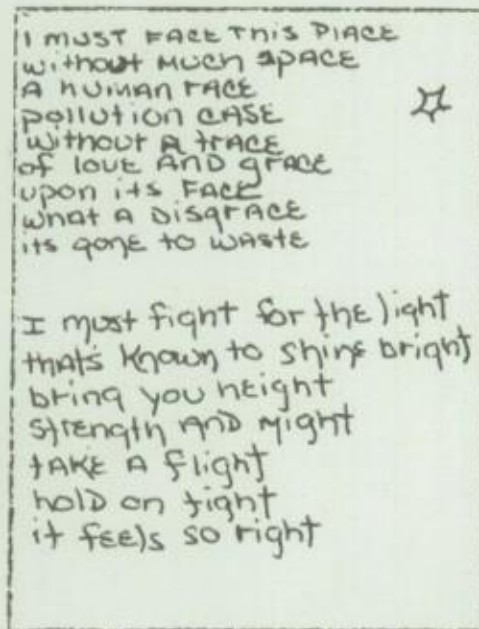 I must face this place
without much space
A human race
pollution case
without a trace
of love and grace
upon its face
what a disgrace
its gone to waste
I must fight for the light
thats known to shine bright
bring you height
strength and might
take a flight
hold on tight
it feels so right